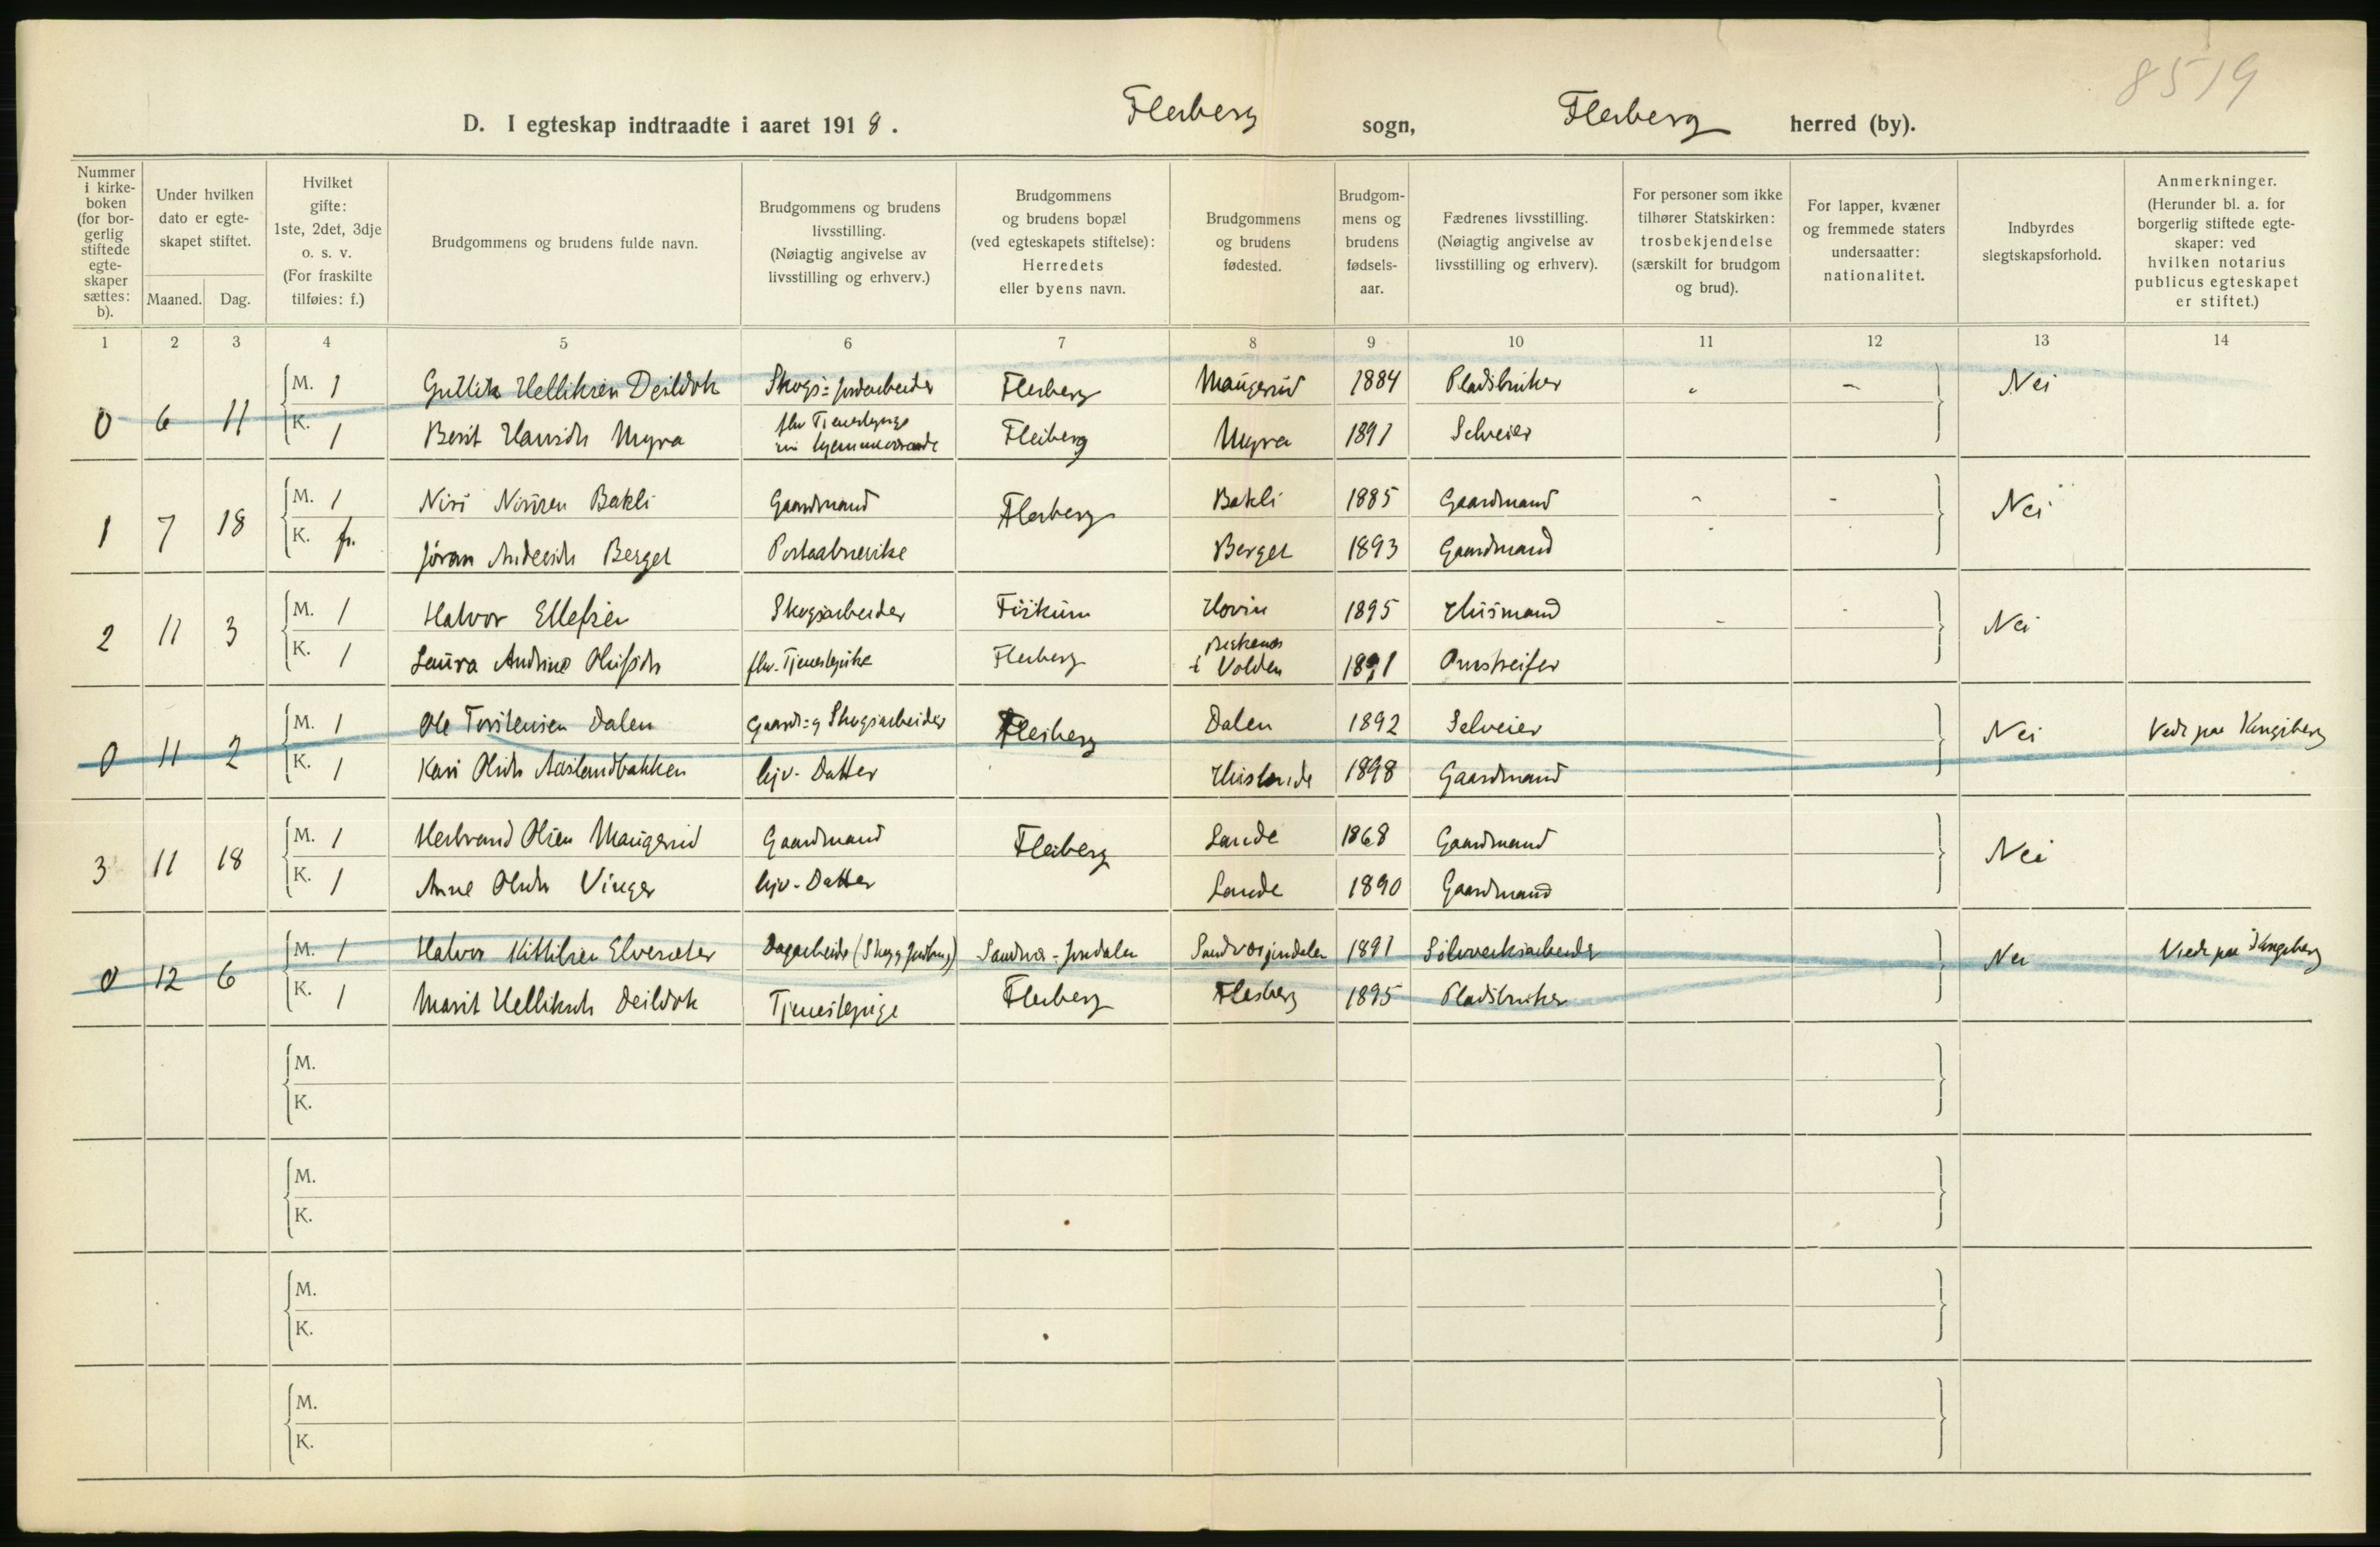 8519
D. I egteskap indtraadte i aaret 1918. Flesberg sogn, Flesberg herred (by).
Nummer i kirke-boken (for bor-gerlig stiftede egte-skaper sættes: b).
Under hvilken dato er egte-skapet stiftet.
Maaned. Dag.
Hvilket gifte: 1ste, 2det, 3dje o. s. v. (For fraskilte tilføies: f.)
Brudgommens og brudens fulde navn.
Brudgommens og brudens livsstilling. (Nøiagtig angivelse av livsstilling og erhverv.)
Brudgommens og brudens bopæl (ved egteskapets stiftelse): Herredets eller byens navn.
Brudgommens og brudens fødested.
Brudgom-mens og brudens fødsels-aar.
Fædrenes livsstilling. (Nøiagtig angivelse av livsstilling og erhverv).
For personer som ikke tilhører Statskirken: trosbekjendelse (særskilt for brudgom og brud).
For lapper, kvæner og fremmede staters undersaatter: nationalitet.
Indbyrdes slegtskapsforhold.
Anmerkninger. (Herunder bl. a. for borgerlig stiftede egte-skaper: ved hvilken notarius publicus egteskapet er stiftet.)
1 2 3 4 5 6 7 8 9 10 11 12 13 14
0 6 11 M. 1 Gullik Helliksen Deildok Skogs= Jordarbeider Flesberg Maugerud 1884 Pladsbruker " - Nei
K. 1 Berit Hansdtr Myra flv Tjenestepige nu hjemmeværende Flesberg Myra 1891 Selveier
1 7 18 M. 1 Niri Nirisen Bakli Gaardmand Flesberg Bakli 1885 Gaardmand - - Nei
K. fr. Jøran Andersdtr Berget Berget 1893 Gaardmand
2 11 3 M. 1 Halvor Ellefsen Skogsarbeider Fiskum Hovin 1895 Husmand - - Nei
K. 1 Laura Andrine Olufsdtr flv. Tjenestepike Flesberg i Volden 1891 Omstreifer
0 11 2 M. 1 Ole Torstensen Dalen Gaards= g Skogsarbeider Flesberg Dalen 1892 Selveier Nei Viedt paa Kongsberg
K. 1 Kari Olsdtr Aaslandbakken hjv. Datter 1898 Gaardmand
3 11 18 M. 1 Herbrand Olsen Maugerud Gaardmand Flesberg Lande 1868 Gaardmand Nei
K. 1 Anne Olsdtr Vinger hjv. Datter Lande 1890 Gaardmand
0 12 6 M. 1 Halvor Kittilsen Elvesæter Dagarbeider Sandsvær-Jondalen Sandsvær jondalen 1891 Sølvverksarbeider Nei Viedt paa Kongsberg
K. 1 Marit Helliksdtr Deildok Tjenestepige Flesberg Flesberg 1895 Pladsbruker
M.
K.
M.
K.
M.
K.
M.
K.